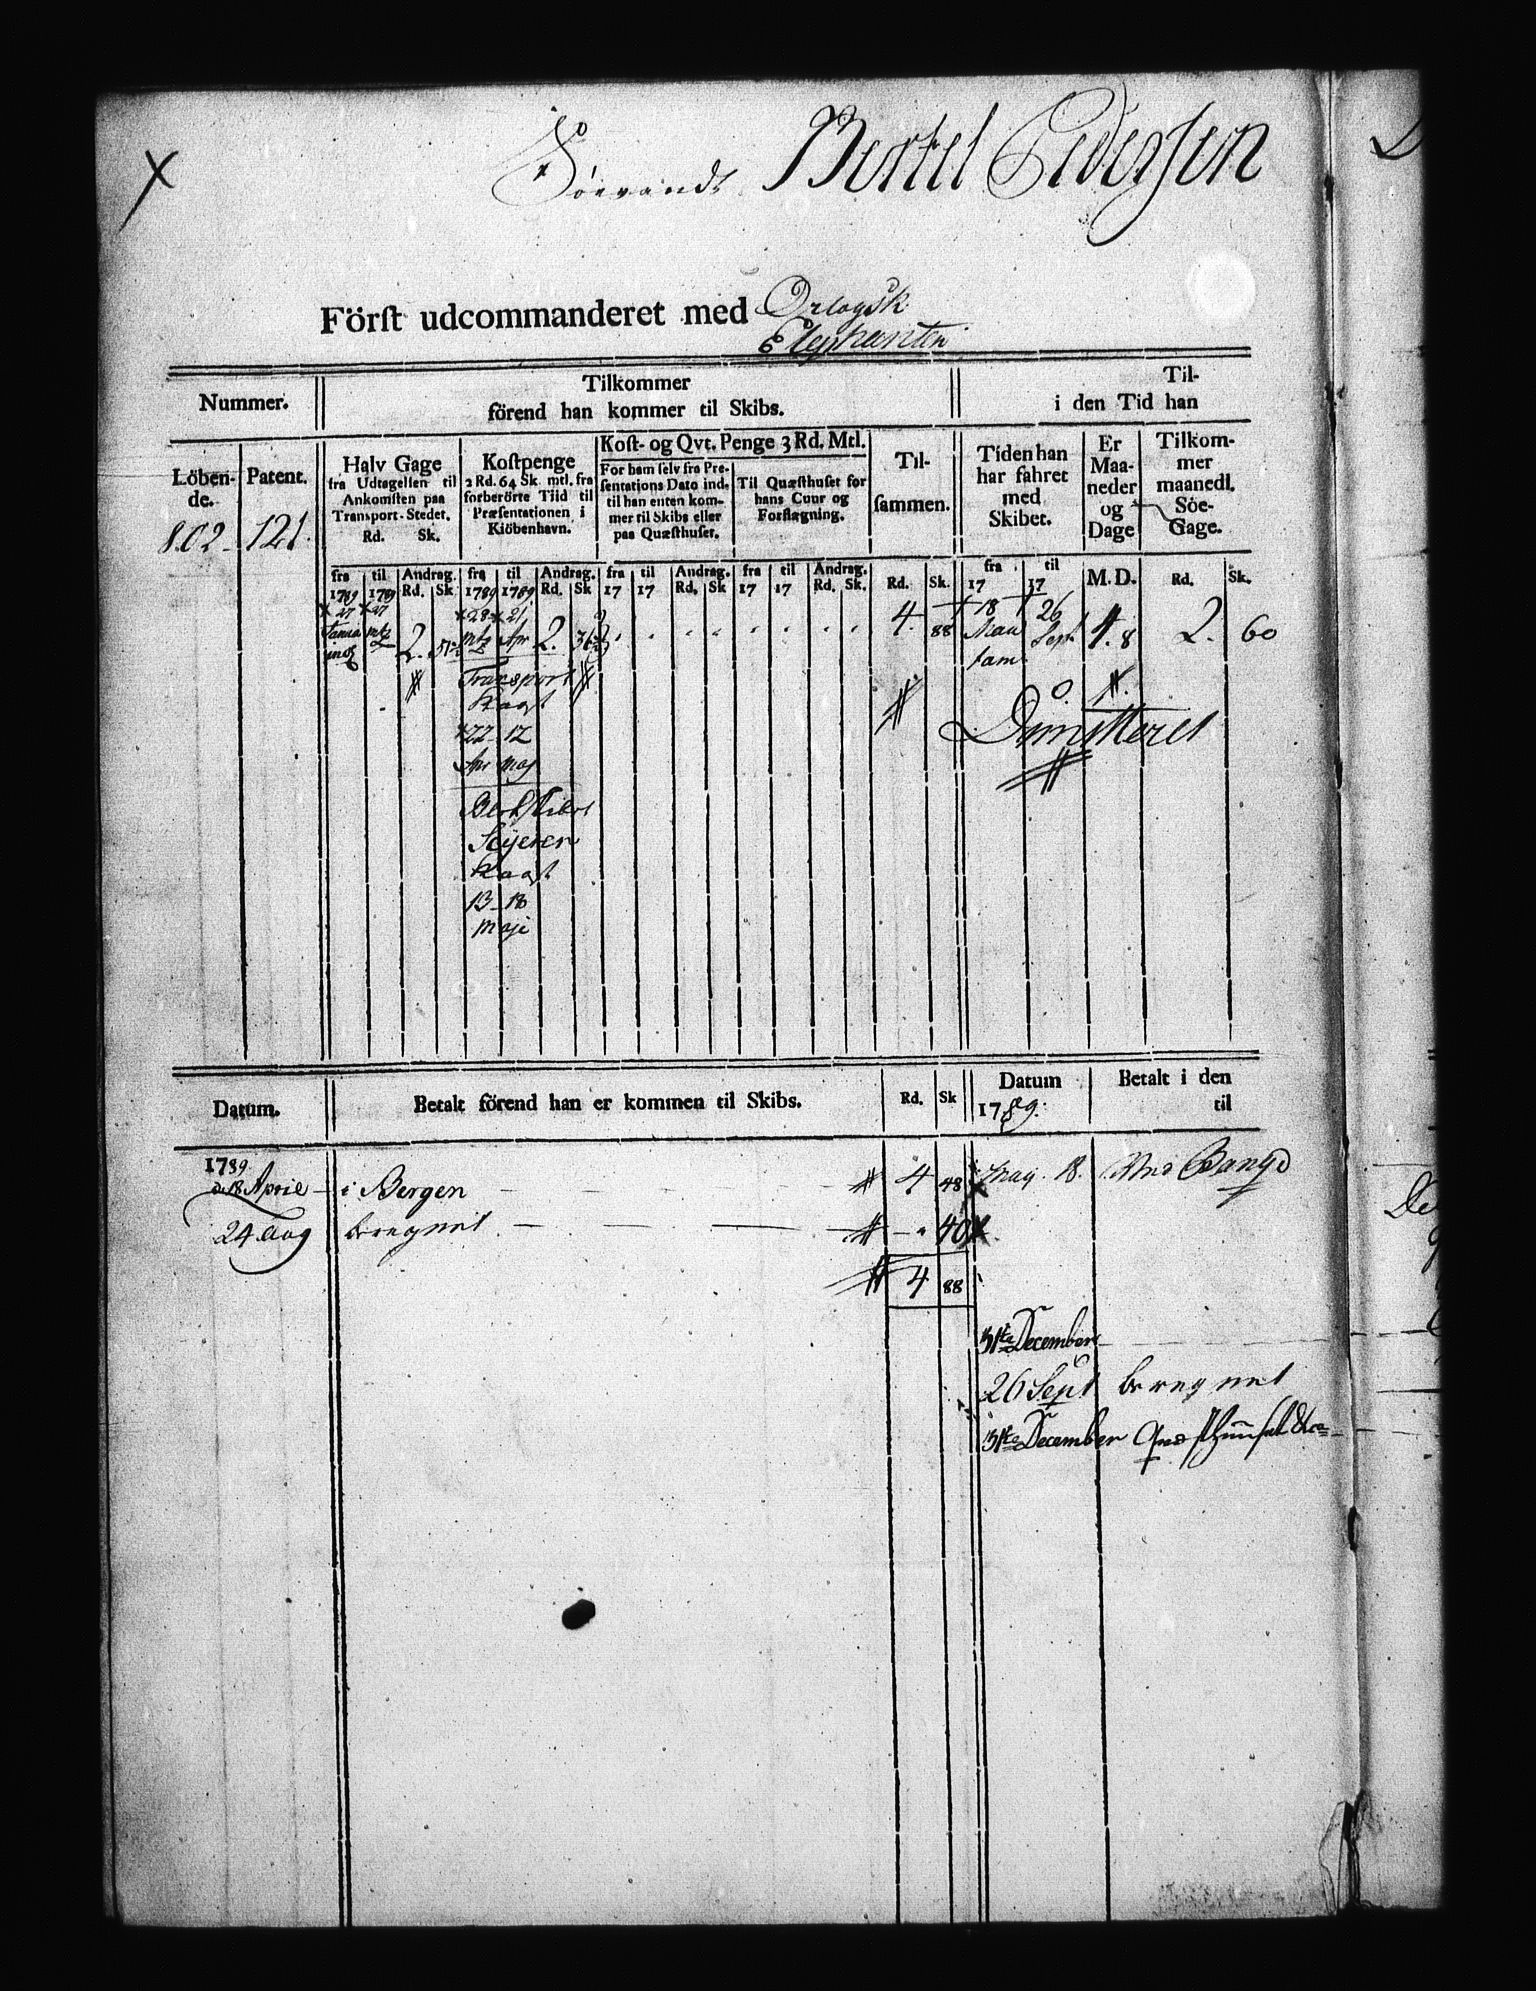 Bertel Pedersen
Först udcommanderet med Orlogsk.
Elephanten
Nummer.
Tilkommer
förend han kommer til Skibs.
Til-
i den Tid han
Löben-
de.
Patent.
Halv Gage
fra Udtagelsen til
Ankomsten paa
Transport-Stedet.
Rd. Sk.
Kostpenge
2 Rd. 64 Sk. mtl. fra
forberörte Tiid til
Præsentationen i
Kiöbenhavn.
Kost- og Qvt. Penge 3 Rd. Mtl.
For ham selv fra Pre-
sentations Dato ind-
til han enten kom-
mer til Skibs eller
paa Quæsthuset.
Til Quæsthuset for
hans Cuur og
Forflægning.
Til-
sammen.
Tiden han
har fahret
med
Skibet.
Er
Maa-
neder
og
Dage
Tilkom-
mer
maanedl.
Söe-
Gage.
802 121.
fra til Andrag. fra til Andrag. fra til Andrag. fra til Andrag. Rd. Sk. fra til M. D. Rd. Sk.
1789 1789 Rd. Sk 1789 1789 Rd. Sk 17 17 Rd. Sk 17 17 Rd. Sk. 17 17
27 27 28 21 4 88 18 26
2. Apr 2. Sept 4. 8 2. 60
Transport
Kaast
22 12
Apr maj
Dimitteret
Blokskibet
Seijeren
Kaast
13 18
maji
Datum.
Betalt förend han er kommen til Skibs.
Rd. Sk
Datum
1789.
Betalt i den
til
1789
d. 18 April i Bergen 4 48 May 18. Bange
24 Aug beregnet 40
4 88
31te December
26 Sept beregnet
31te December